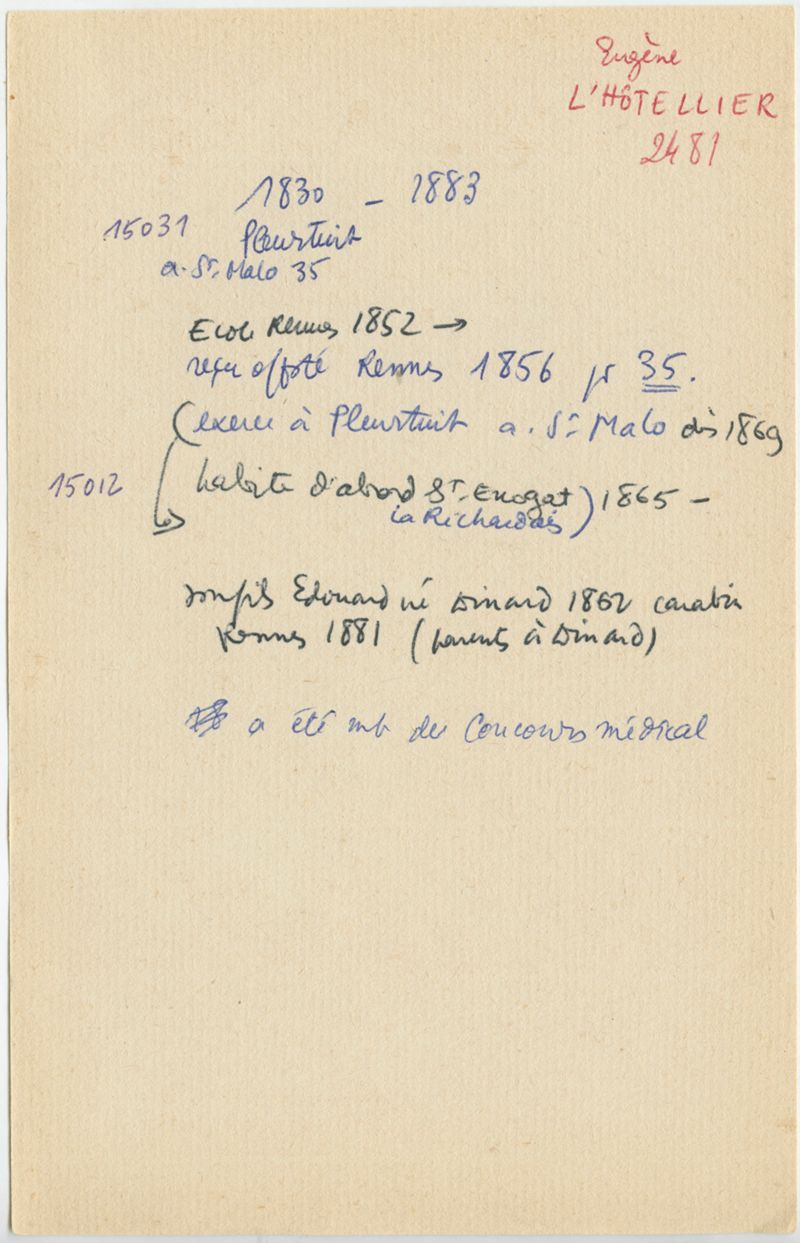 Eugène
L'HÔTELLIER
2481
1830 – 1883
15031 Pleurtuit
a. St. Malo 35
Ecole Rennes 1852 →
reçu offté Rennes 1856 pr 35.
(exerce à Pleurtuit a. St Malo dès 1869
15012 habite d'abord St-Enogat) 1865 –
la Richardais)
son fils Edouard né Dinard 1862 carabin
Rennes 1881 (parents à Dinard)
a été mb du Concours médical